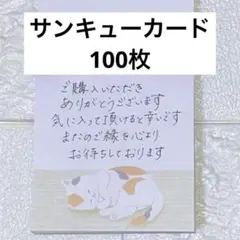 サンキューカード
100枚
ご購入いただき
ありがとうございます
気に入って頂けると幸いです
またのご縁を心より
お待ちしております